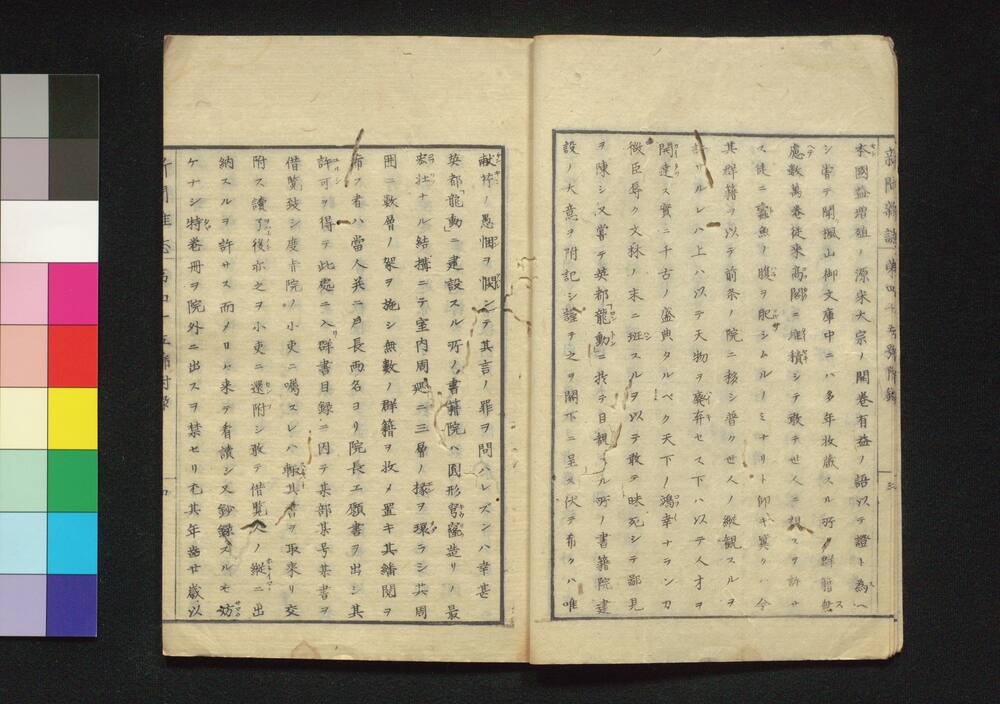 本國益増殖ノ源宋大宗ノ開巻有益ノ語以テ證ト為ヘ
シ嘗テ聞楓山御文庫中ニハ多年收蔵スル所ノ群籍無
慮數萬巻従来高閣ニ堆積シテ敢テ世人ニ観スヲ許サ
ス徒ニ蠧魚ノ腹ヲ肥シムルノミナリト仰キ冀クハ今
其群籍ヲ以テ前条ノ院ニ移シ普ク世人ノ縦観スルヲ
許サルレハ上ハ以テ天物ヲ棄弃セス下ハ以テ人才ヲ
開達ス實ニ千古ノ盛典タルベク天下ノ鴻幸ナランカ
微臣辱ク文林ノ末ニ班スルヲ以テ敢テ昧死シテ鄙見
ヲ陳シ又嘗テ英都「龍動」ニ於テ目観スル所ノ書籍院建
設ノ大意ヲ附記シ謹テ之ヲ閣下ニ呈ス伏テ希クハ唯
献芹ノ愚悃ヲ憫シテ其言ノ罪ヲ問ハレズンハ幸甚
英都「龍動」ニ建設スル所ノ書籍院ハ圓形穹窿造リノ最
宏壮ナル結搆ニテ室内周廻ニ三層ノ椽ヲ環ラシ其周
囲ニ数層ノ架ヲ施シ無數ノ群籍ヲ收メ置キ其繙閲ヲ
希フ者ハ當人并ニ戸長両名ヨリ院長エ願書ヲ出シ其
許可ヲ得テ此處ニ入群書目録ニ因テ某部某号某書ヲ
借覧致シ度旨院ノ小吏ニ嘱スレハ輙其書ヲ取来リ交
附ス讀了後亦之ヲ小吏ニ還附シ敢テ借覧人ノ縦ニ出
納スルヲ許サス而メ日々来テ看讀シ又鈔録スルモ妨
ケナシ特巻冊ヲ院外ニ出スヲ禁セリ尤其年齒廿歳以